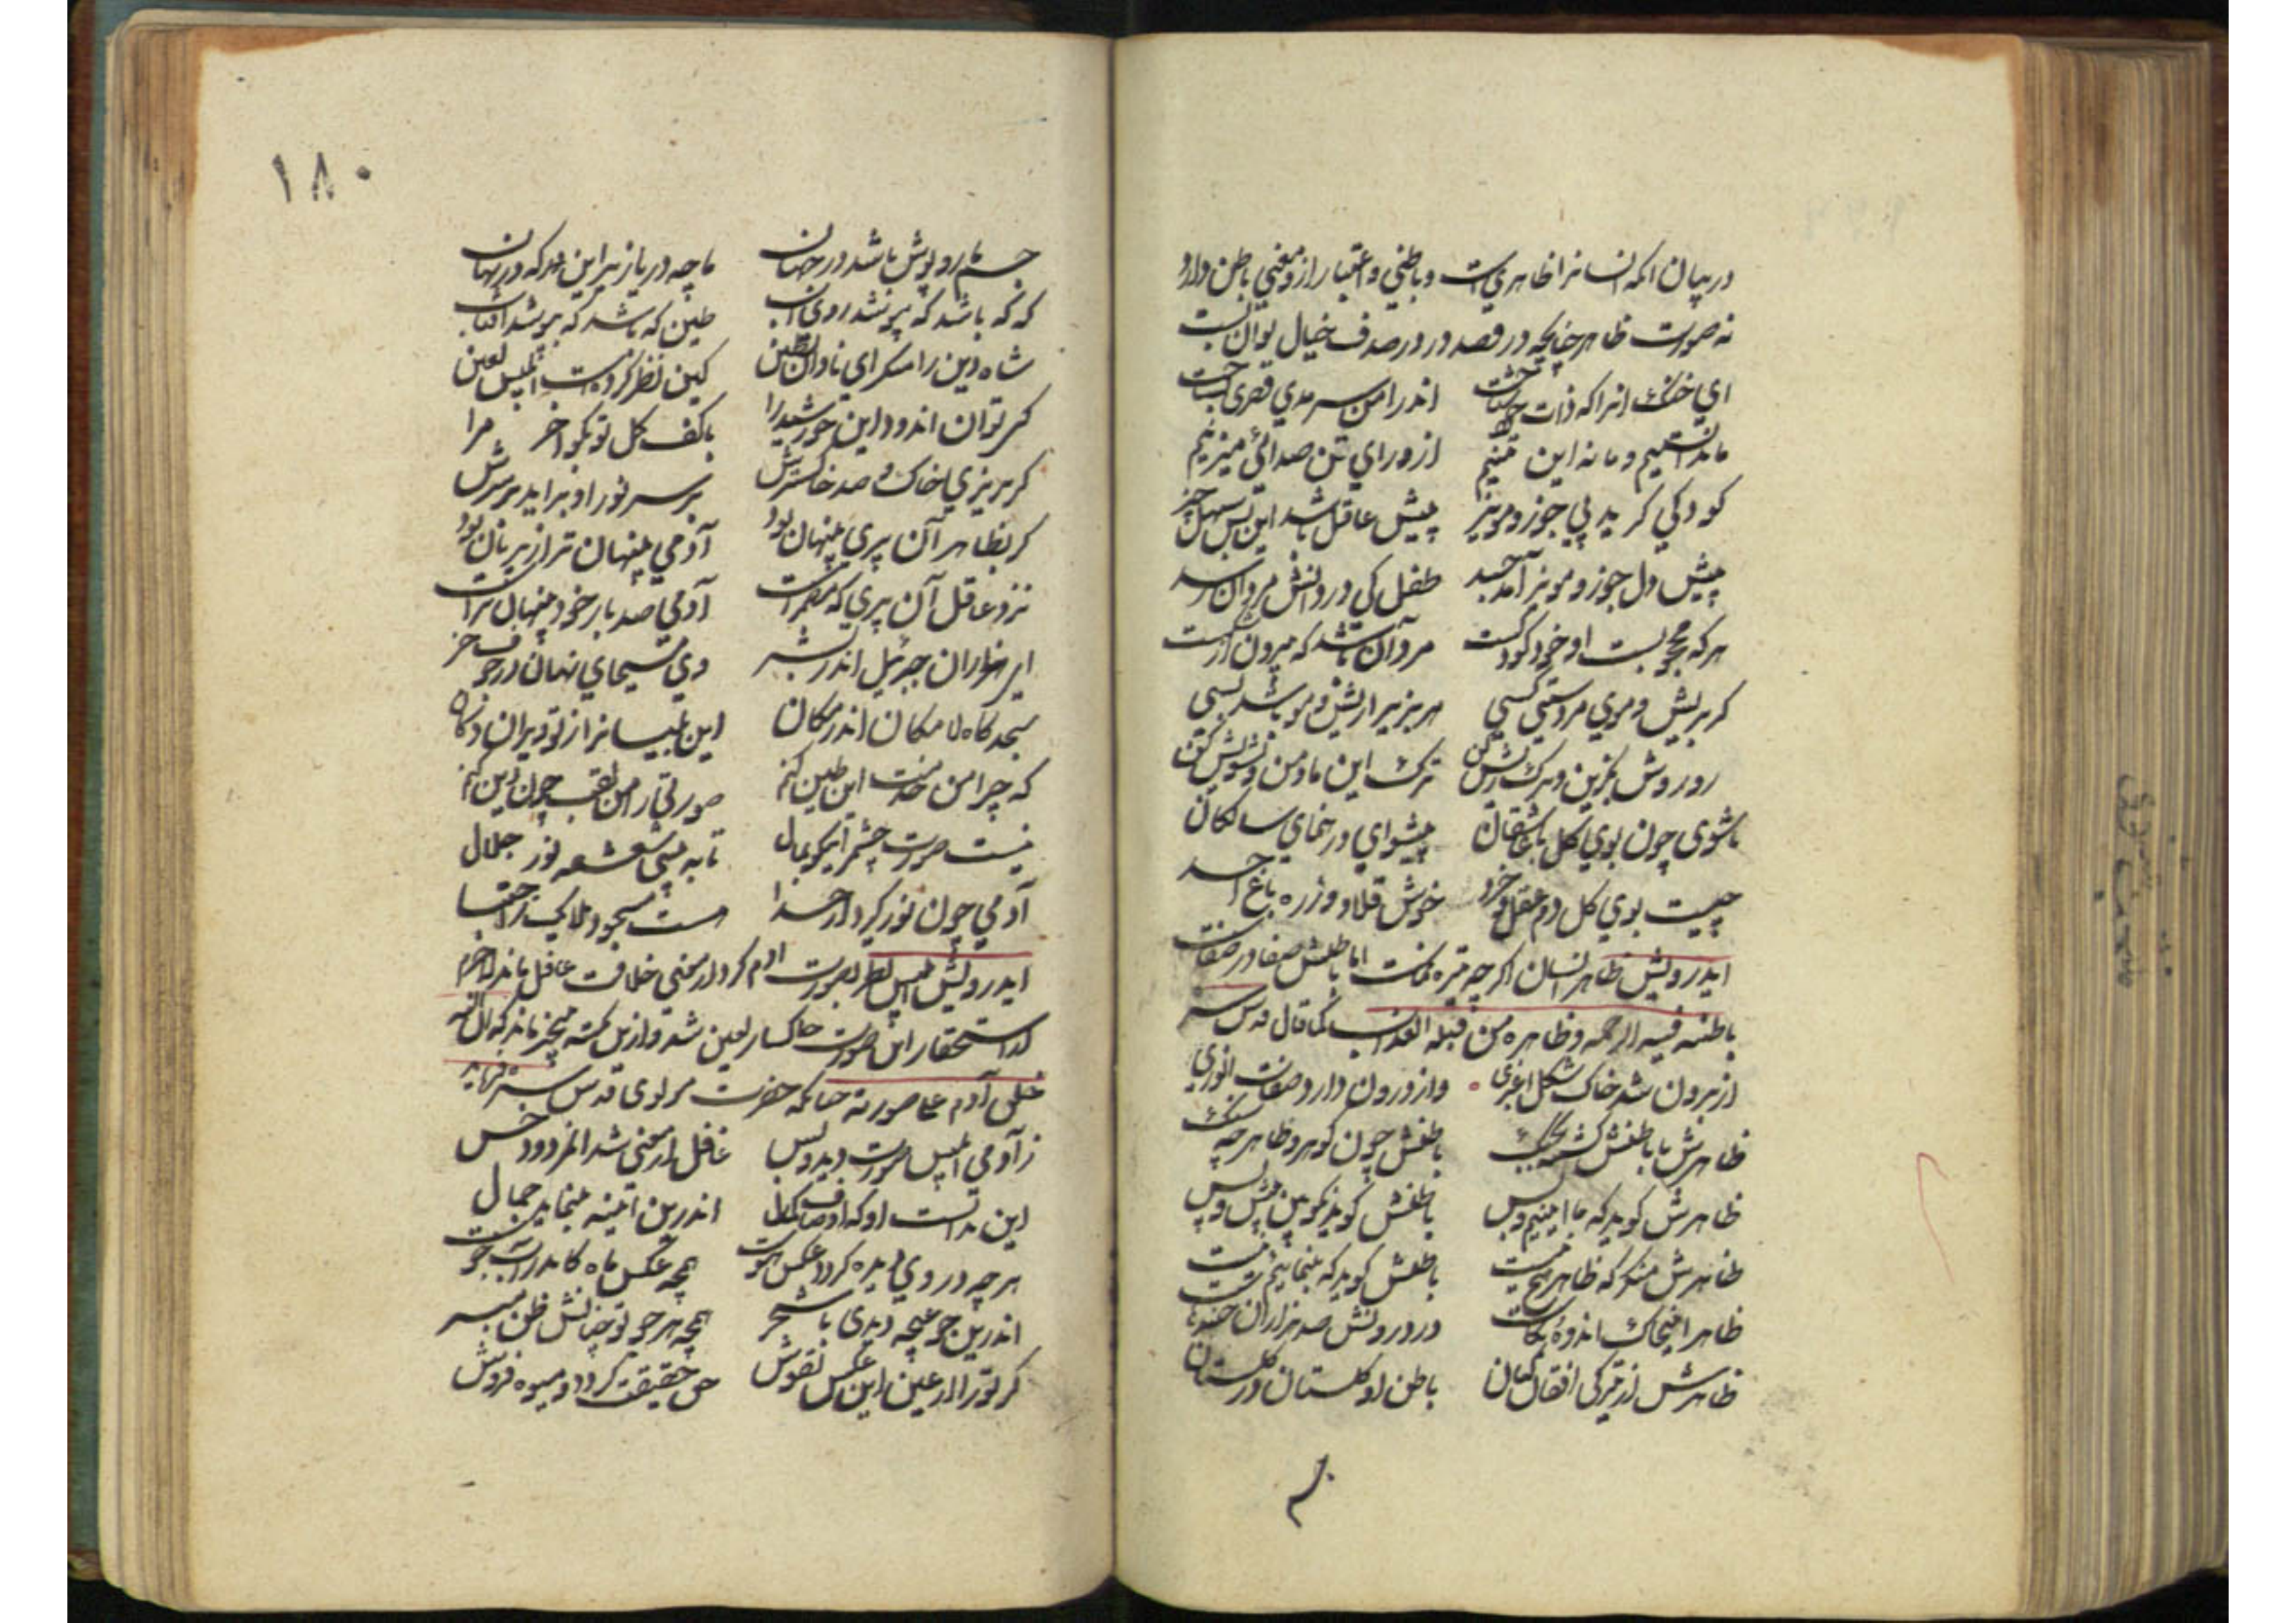 در بیان انکه انسانرا ظاهریست و باطنی و اعتبار از و معنی باطن دارد
نه صورت ظاهر چنانچه در قصه در در صدف خیال توان بست
ای خنک انرا که ذات خود شناخت اندر امن سرمدی قصری بساخت
ما نه انستیم و ما نه این تنیم از ورای تن صدائی میزنیم
کودکی گرید پی جوز و مویز پیش عاقل باشد این بس سهل چیز
پیش دل جوز و مویز آمد جسد طفل کی در دانش مردان رسد
هر که محجوبست او خود کودکست مرد آن باشد که بیرون از شکست
کر بریش و موی مردستی کسی هر بزیرا ریش و مو باشد بسی
رو روش بگزین و ترک ریش کن ترک این ما و من و تشویش کن
تا شوی چون بوی کل با عاشقان پیشوای و رهنمای سالکان
چیست بوی کل دم عقل و خرد خوش قلاووز ره باغ احد
ایدرویش ظاهر انسان اگر چه تیره نماست اما باطنش صفا در صفاست
باطنه فیه الرحمه و ظاهره من قبله العذاب کما قال قدس سره
از برون شد خاک شکل اغبری واز درون دارد صفات انوری
ظاهرش با باطنش کشته بجنک باطنش چون کوهر و ظاهر چه سنک
ظاهرش کوید که ما اینیم و بس باطنش کوید نکو بین پیش و پس
ظاهرش منکر که ظاهر هیچ نیست باطنش کوید که بنمائیم بیست
در درونش صد هزاران خنده هاست
ظاهرش از تیرکی افغان کنان باطن او کلستان در کلستان
۱۸۰
جسم ما روپوش باشد در جهان ما چه دریا زیر این که در نهان
که که باشد که بپوشد روی آب طین که باشد که بپوشد آفتاب
شاه دین را منکر ای نادان بطین کین نظر کرده است ابلیس لعین
کی توان اندود این خورشید را با کف کل تو بکو آخر مرا
کر بریزی خاک و صد خاکسترش بر سر نور او براید بر سرش
کر بظاهر آن پری پنهان بود آدمی پنهان تر از پریان بود
نزد عاقل آن پری که مضمر است آدمی صد بار خود پنهان تر است
ای هزاران جبرئیل اندر بشر وی مسیحای نهان در جوف خر
سجده کاه لامکان اندر مکان این بلیسانرا از تو ویران دکان
که چرا من خدمت این طین کنم صورتی را من لقب چون دین کنم
نیست صورت چشم را نیکو بمال تا به بینی شعشعه نور جلال
آدمی چون نور کیرد از خدا هست مسجود ملایک ز اجتبا
ایدرویش ابلیس نظر بصورت آدم کرد و از معنی خلافت غافل ماند لاجرم
استحقار این صورت خاکسار لعین شد و ازین نکته بیخبر ماند که ان الله
خلق آدم علی صورته چنانکه حضرت مولوی قدس سره فرماید
زآدمی ابلیس صورت دید و بس غافل از معنی شد آن مردود خس
اندرین آئینه بنماید جمال
هر چه در روی دیده کردد عکس اوست همچو عکس ماه کاندر آب جوست
کر تو را از عین این عکس نقوش حق حقیقت کردد و میوه فروش